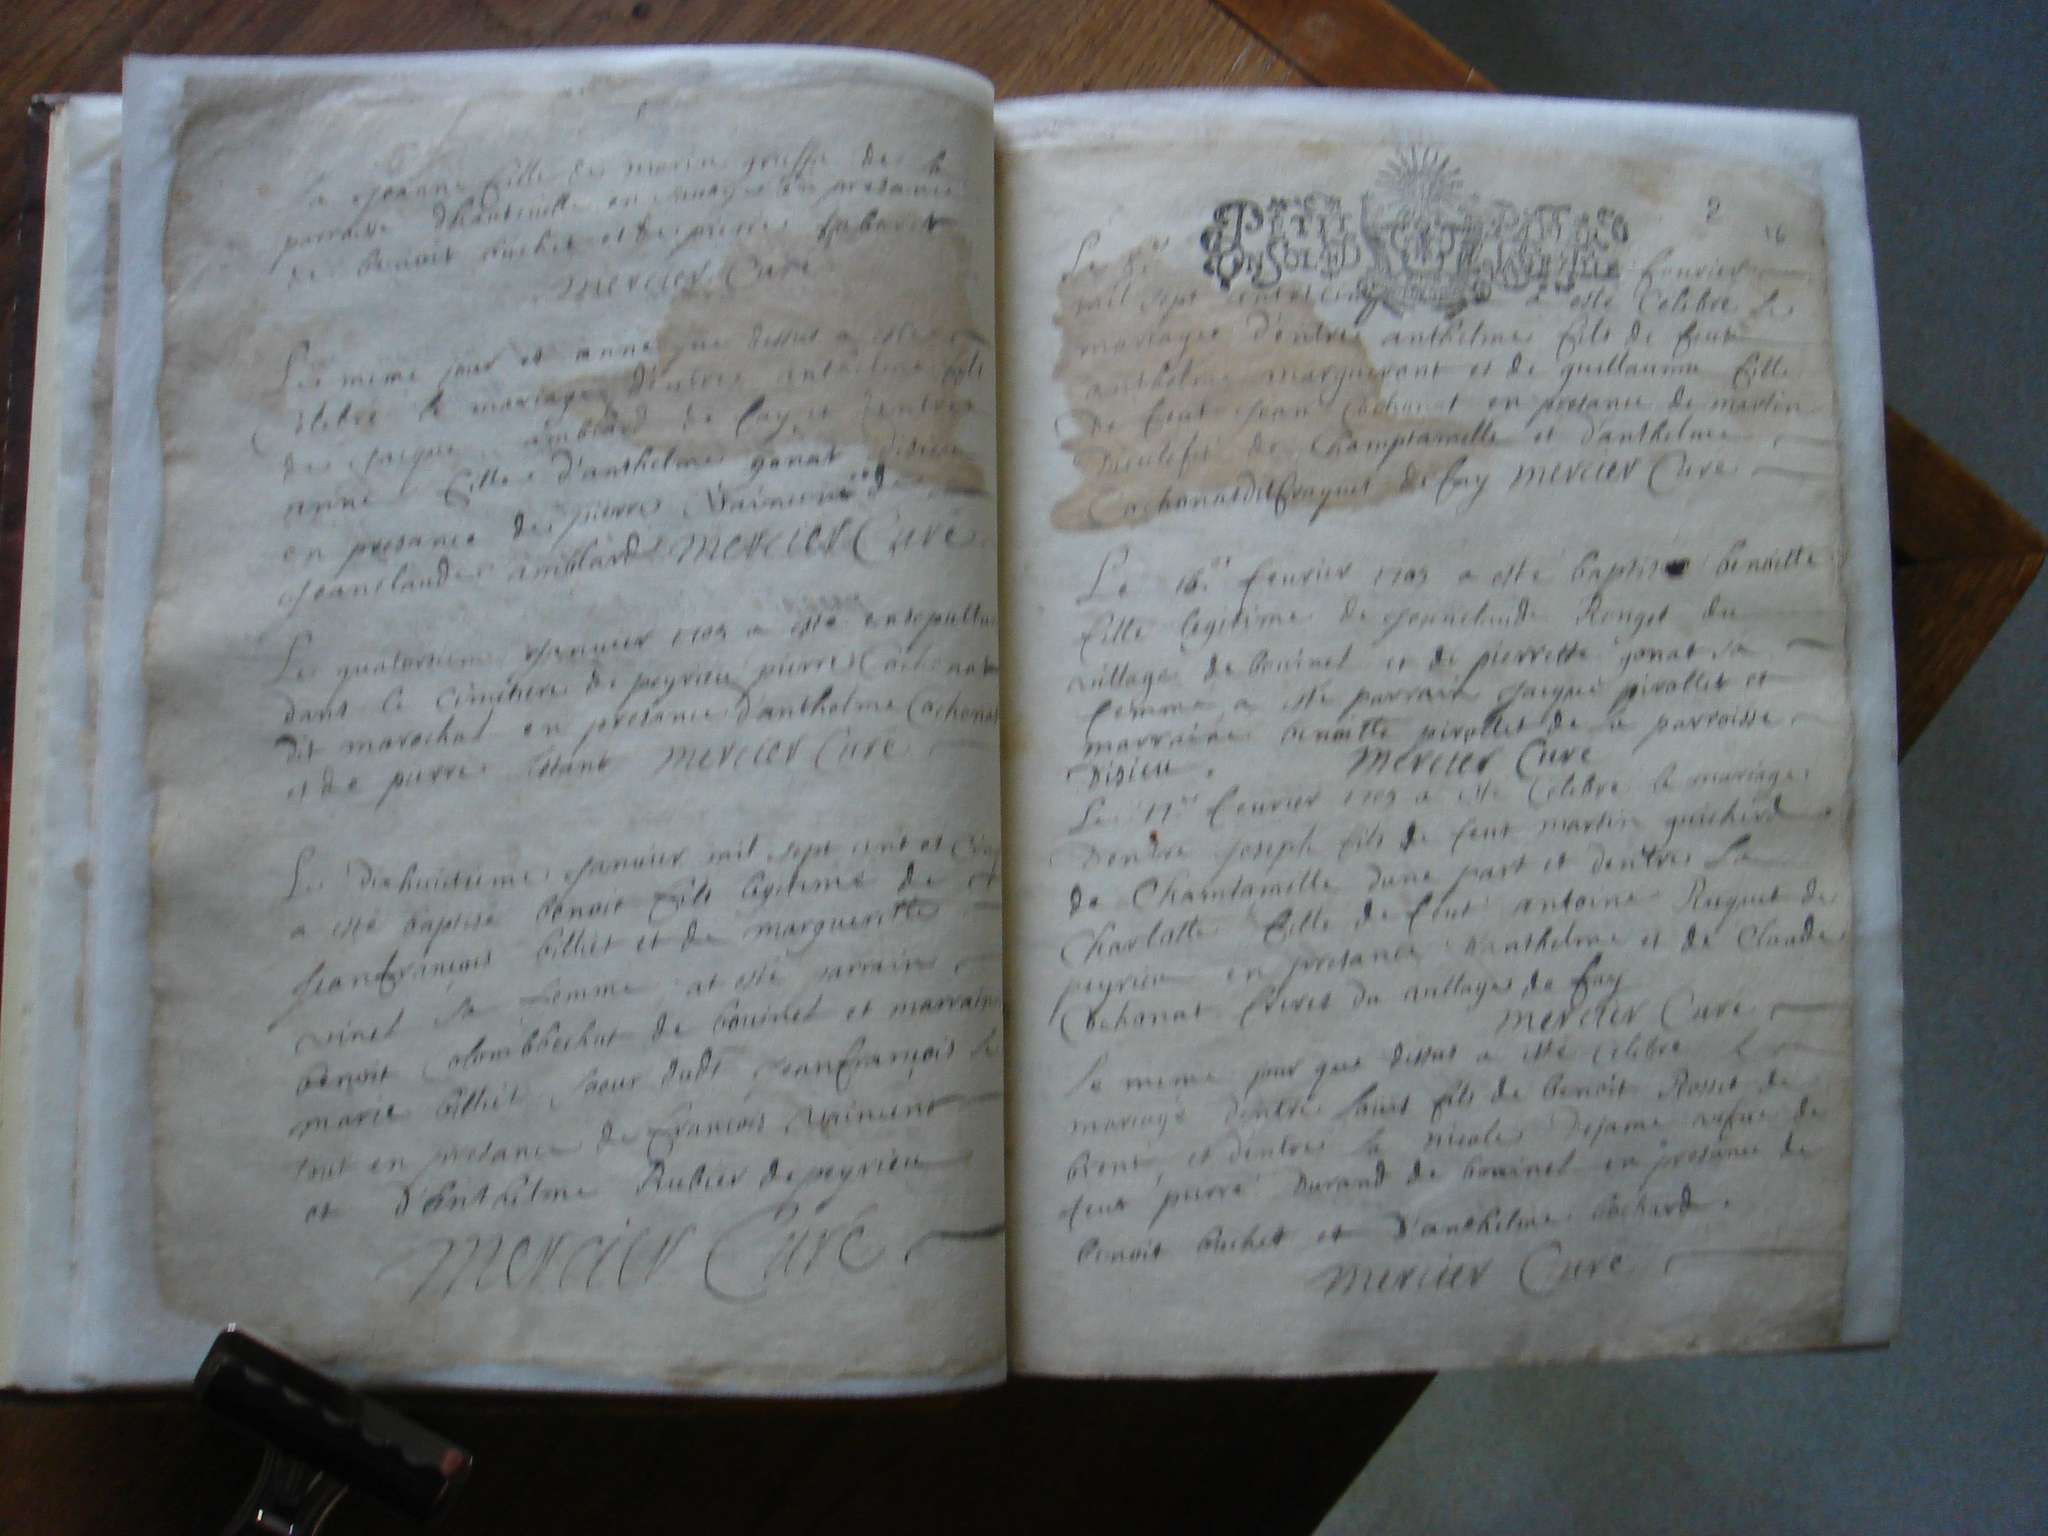 la Jeanne fille de marin de la
parroisse en presance
de benoit buchet et de pierre
mercier Curé
Le meme jour et anne que dessus a esté
Celebré le mariage d'entre antheline fils
de Jacque amblard de fay et dentre
anne fille d'anthelme gonat disieu
en presance de pierre et de
Jeanclaude amblard mercier Curé
Le quatorsieme Janvier 1705 a esté ensepultur
dans le Cimetiere de peyrieu pierre Cochonat
dit marechal en presance d'anthelme Cochonat
et de pierre mercier Curé
Le dixhuitieme Janvier mil sept cent et Cinq
a esté baptisé benoit fils legitime de
Jeanfrançois billiet et de margueritte
vinet sa femme at esté parrain
benoit de bouinel et marraine
marie billiet soeur dudt Jeanfrançois le
tout en presance de françois
et d'anthelme Rubier de peyrieu
mercier Curé
PETIT PAP
UN SOL
2
16
Le fevrier
mil sept cent et cinq a esté Celebré le
mariage d'entre anthelme fils de feut
anthelme margueront et de guillauma fille
de feut Jean Cochonat en presance de martin
dieulefit de Champtamelle et d'anthelme
Cochonat dit fraquet de fay mercier Curé
Le 16e fevrier 1705 a esté baptisé benoitte
fille legitime de Jeanclaude Ronget du
village de bouinel et de pierrette gonat sa
femme a esté parrain Jacque pirollet et
marraine benoitte pirollet de la parroisse
disieu mercier Curé
Le 17e fevrier 1705 a esté Celebré le mariage
Dentre Joseph fils de feut martin guicherd
de Chamtamelle dune part et dentre la
Charlotte fille de feut antoine Ruguet de
peyrieu en presance d'anthelme et de Claude
Cochonat freres du village de fay
mercier Curé
le meme jour que dessus a esté celebré le
mariage dentre louis fils de benoit Rosset de
brens et dentre la nicole Dejame vefue de
feut pierre Durand de bouinel en presance de
benoit buchet et d'anthelme bochard
mercier Curé